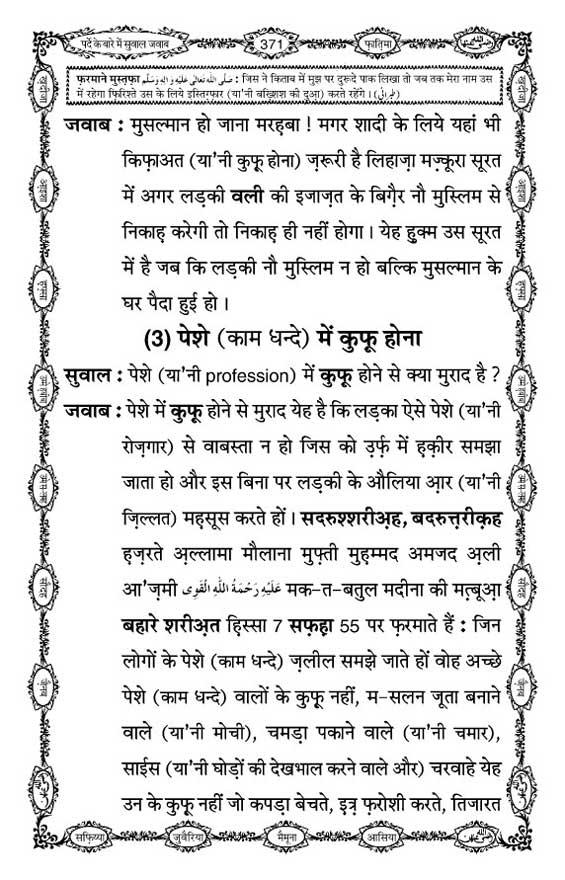 पर्दे के बारे में सुवाल जवाब
371
फ़ातिमा
फ़रमाने मुस्तफ़ा صَلَّى اللهُ تَعَالٰى عَلَيْهِ وَاٰلِهٖ وَسَلَّم : जिस ने किताब में मुझ पर दुरूदे पाक लिखा तो जब तक मेरा नाम उस
में रहेगा फ़िरिश्ते उस के लिये इस्तिग़्फ़ार (या'नी बख़्शिश की दुआ) करते रहेंगे । (طبرانی)
जवाब : मुसल्मान हो जाना मरह़बा ! मगर शादी के लिये यहां भी
किफ़ाअत (या'नी कुफ़ू होना) ज़रूरी है लिहाज़ा मज़्कूरा सूरत
में अगर लड़की वली की इजाज़त के बिग़ैर नौ मुस्लिम से
निकाह़ करेगी तो निकाह़ ही नहीं होगा । येह ह़ुक्म उस सूरत
में है जब कि लड़की नौ मुस्लिम न हो बल्कि मुसल्मान के
घर पैदा हुई हो ।
(3) पेशे (काम धन्दे) में कुफ़ू होना
सुवाल : पेशे (या'नी profession) में कुफ़ू होने से क्या मुराद है ?
जवाब : पेशे में कुफ़ू होने से मुराद येह है कि लड़का ऐसे पेशे (या'नी
रोज़गार) से वाबस्ता न हो जिस को उ़र्फ़ में ह़क़ीर समझा
जाता हो और इस बिना पर लड़की के औलिया आ़र (या'नी
ज़िल्लत) महसूस करते हों । सदरुश्शरीअ़ह, बदरुत्तरीक़ह
ह़ज़रते अ़ल्लामा मौलाना मुफ़्ती मुह़म्मद अमजद अ़ली
आ'ज़मी عَلَيْهِ رَحْمَةُ اللهِ الْقَوِى मक-त-बतुल मदीना की मत़्बूआ़
बहारे शरीअ़त हिस्सा 7 सफ़ह़ा 55 पर फ़रमाते हैं : जिन
लोगों के पेशे (काम धन्दे) ज़लील समझे जाते हों वोह अच्छे
पेशे (काम धन्दे) वालों के कुफ़ू नहीं, म-सलन जूता बनाने
वाले (या'नी मोची), चमड़ा पकाने वाले (या'नी चमार),
साईस (या'नी घोड़ों की देखभाल करने वाले और) चरवाहे येह
उन के कुफ़ू नहीं जो कपड़ा बेचते, इत्र फ़रोशी करते, तिजारत
सफ़िय्या
जुवैरिया
मैमूना
आसिया